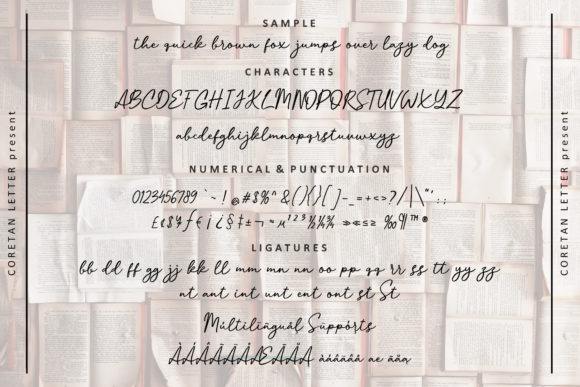 SAMPLE
the quick brown fox jumps over lazy dog
CHARACTERS
ABCDEFGHIJKLMNOPQRSTUVWXYZ
abcdefghijklmnopqrstuvwxyz
NUMERICAL & PUNCTUATION
0123456789 ` ~ ! @#$%^ &()()[ ]-_=+<>?/|\“’ : ;
LIGATURES
bb dd ff gg jj kk ll mm mn nn oo pp qq rr ss tt yy zz
nt ant int unt ent ont st St
CORETAN LETTER present
CORETAN LETTER present